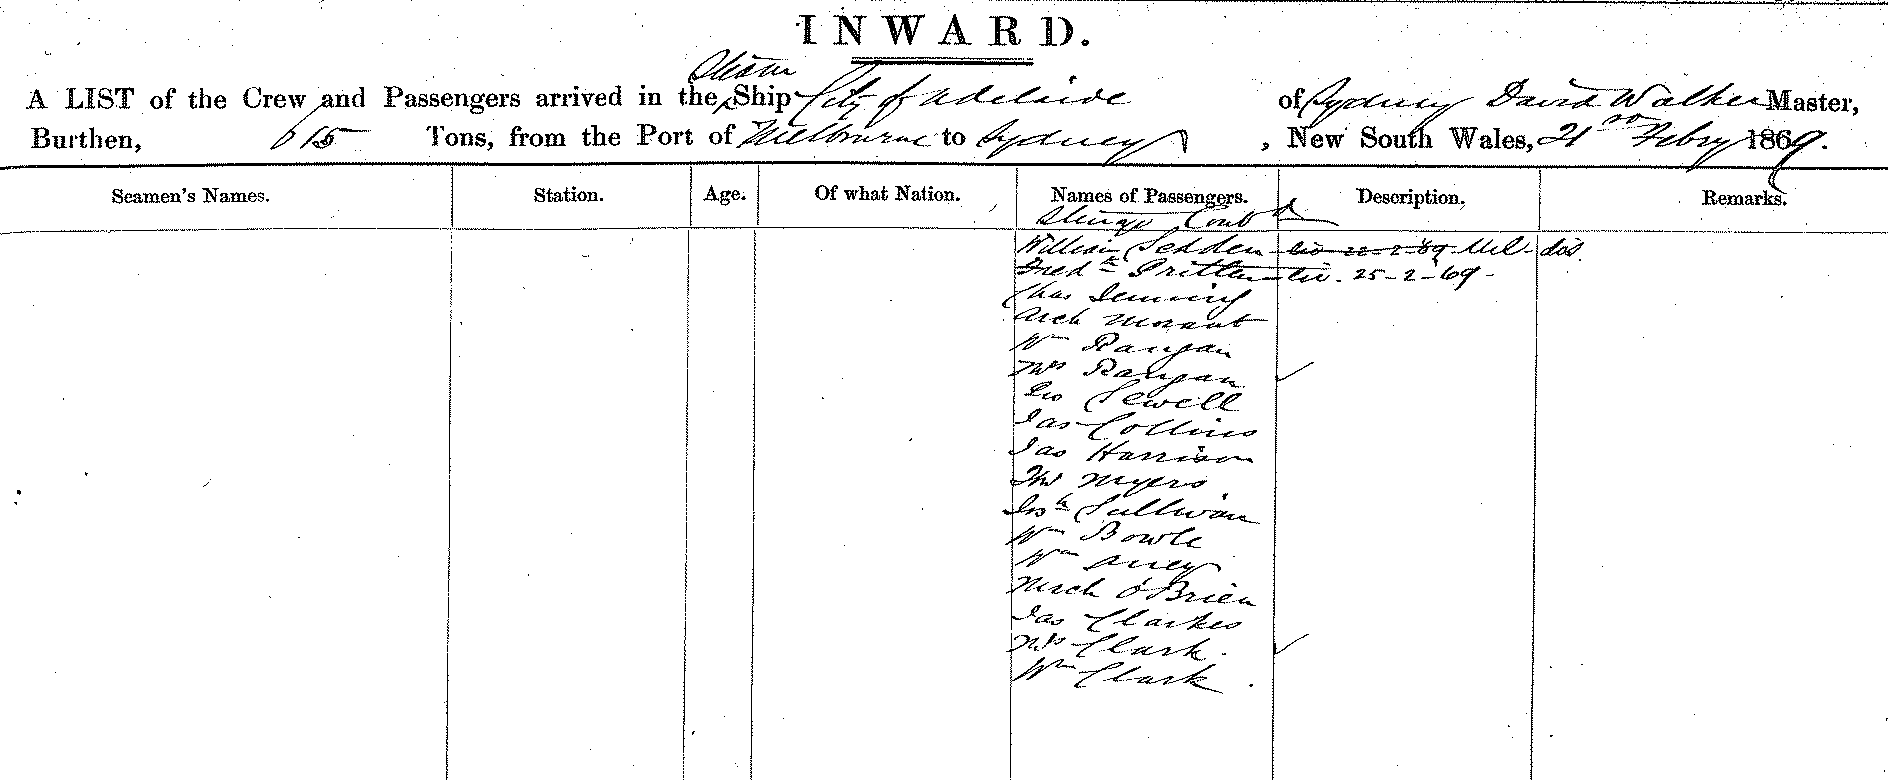 INWARD.
Steam
A LIST of the Crew and Passengers arrived in the Ship City of Adelaide of Sydney David Walker Master,
Burthen, 615 Tons, from the Port of Melbourne to Sydney, New South Wales, 21 Febry 1869.
Seamen's Names. Station. Age. Of what Nation. Names of Passengers. Description. Remarks.
Contd
William Seddon
Fredk 25-2-69-
Chas
Arch Morant
Wm Rangan
Mrs Rangan
Geo Sewell
Jas Collins
Jas Harrison
Thos Myers
Sullivan
Wm Bowle
Wm
Mich O'Brien
Jas Clarkes
Mrs Clark.
Wm Clark.